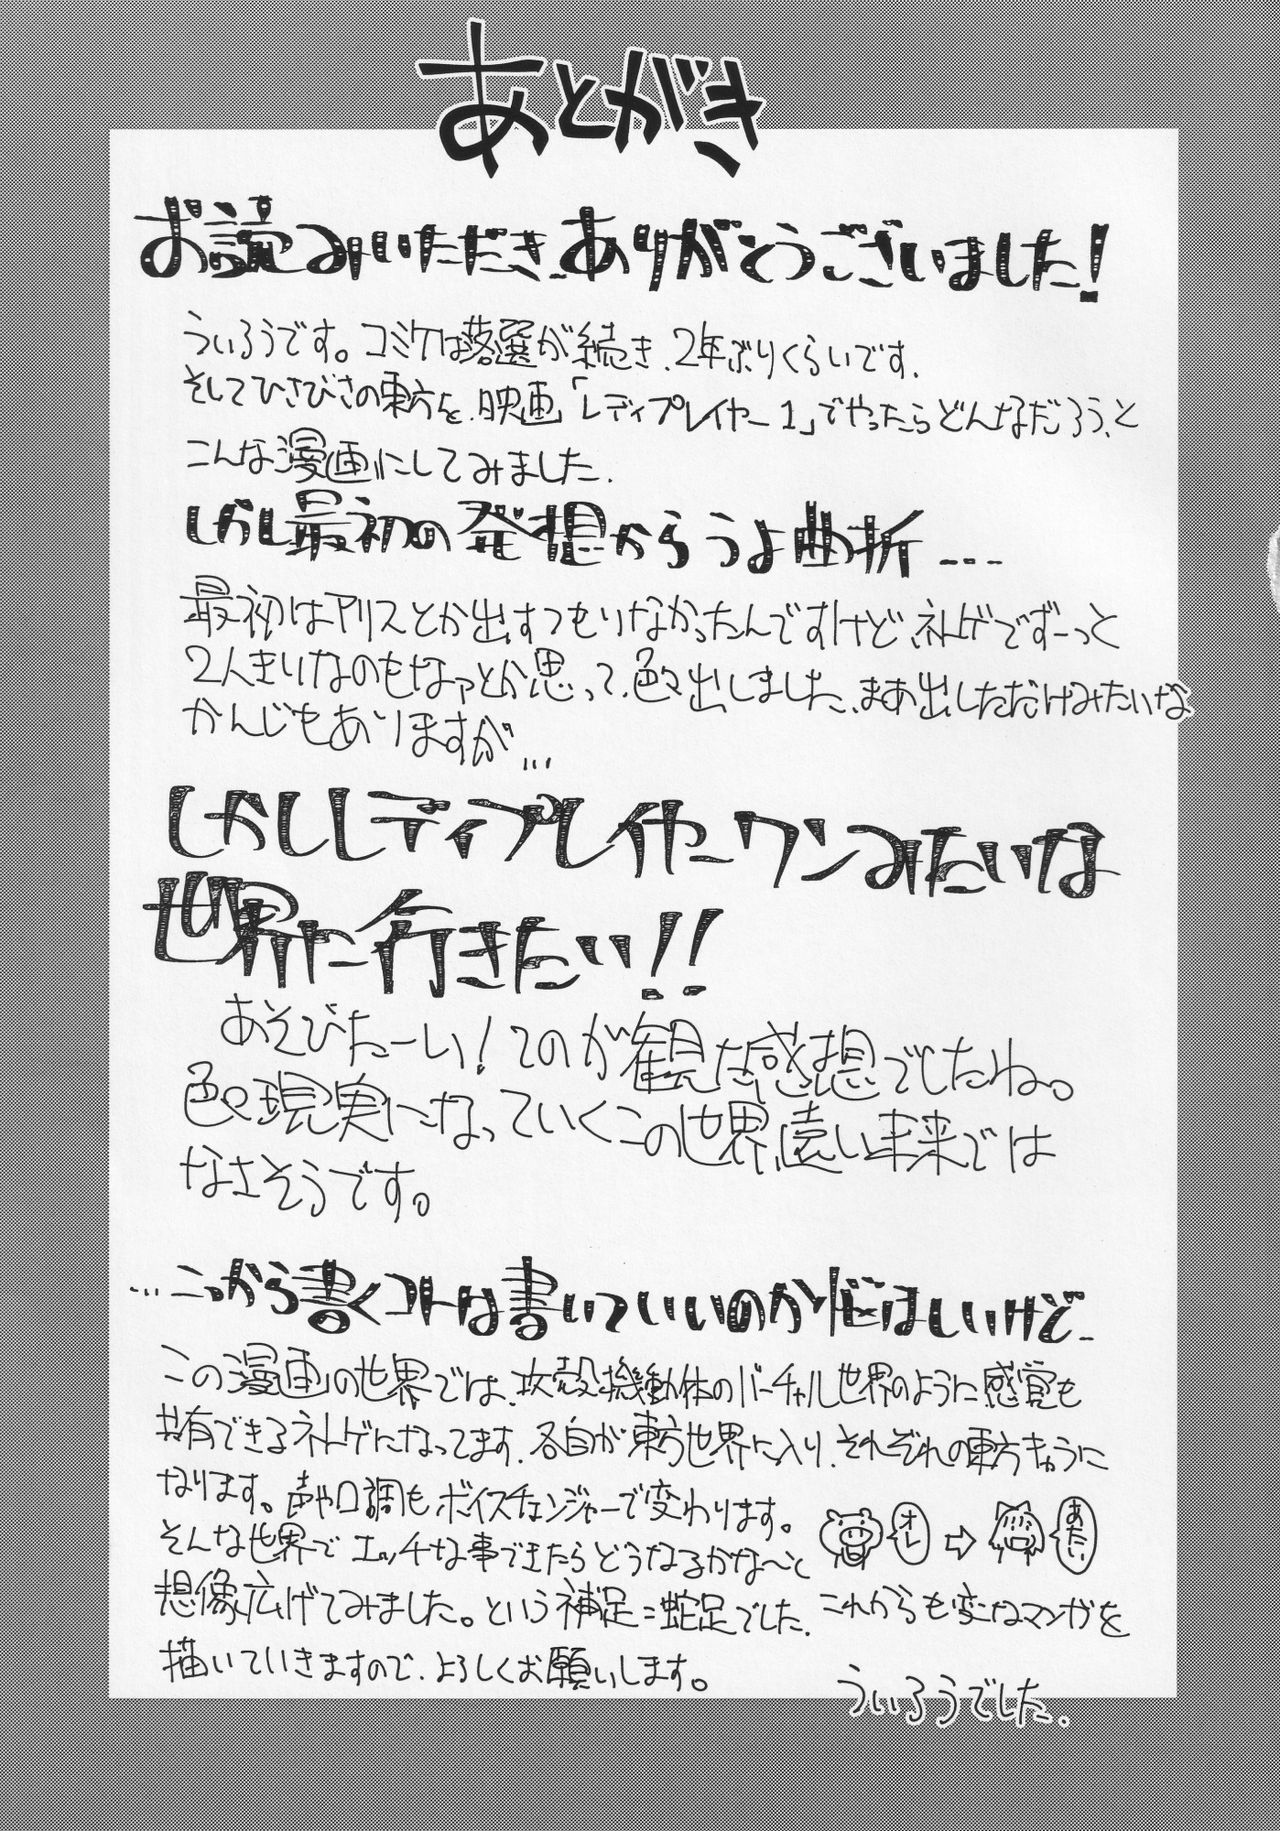 あとがき
お読みいただき、ありがとうございました!
ういろうです。コミケは落選が続き、2年ぶりくらいです。
そしてひさびさの東方を、映画「レディプレイヤー1」でやったらどんなだろう、と
こんな漫画にしてみました。
しかし最初の発想からうよ曲折...
最初はアリスとか出すつもりなかったんですけど、ネトゲでずーっと
2人きりなのもなァとか思って、色々出しました、まあ出しただけみたいな
かんじもありますが...
しかしレディプレイヤーワンみたいな
世界に行きたい!!
あそびたーい!てのが観た感想でしたね。
色々現実になっていくこの世界、遠い未来では
なさそうです。
...こっから書くコトは書いていいのか悩ましいけど、
この漫画の世界では、攻殻機動体のバーチャル世界のように感覚も
共有できるネトゲになってます。各自が東方世界に入り、それぞれの東方キャラに
なります。声や口調もボイスチェンジャーで変わります。
オレ⇨あたい
そんな世界でエッチな事できたらどうなるかな〜と
想像広げてみました。という補足=蛇足でした。これからも変なマンガを
描いていきますので、よろしくお願いします。
ういろうでした。